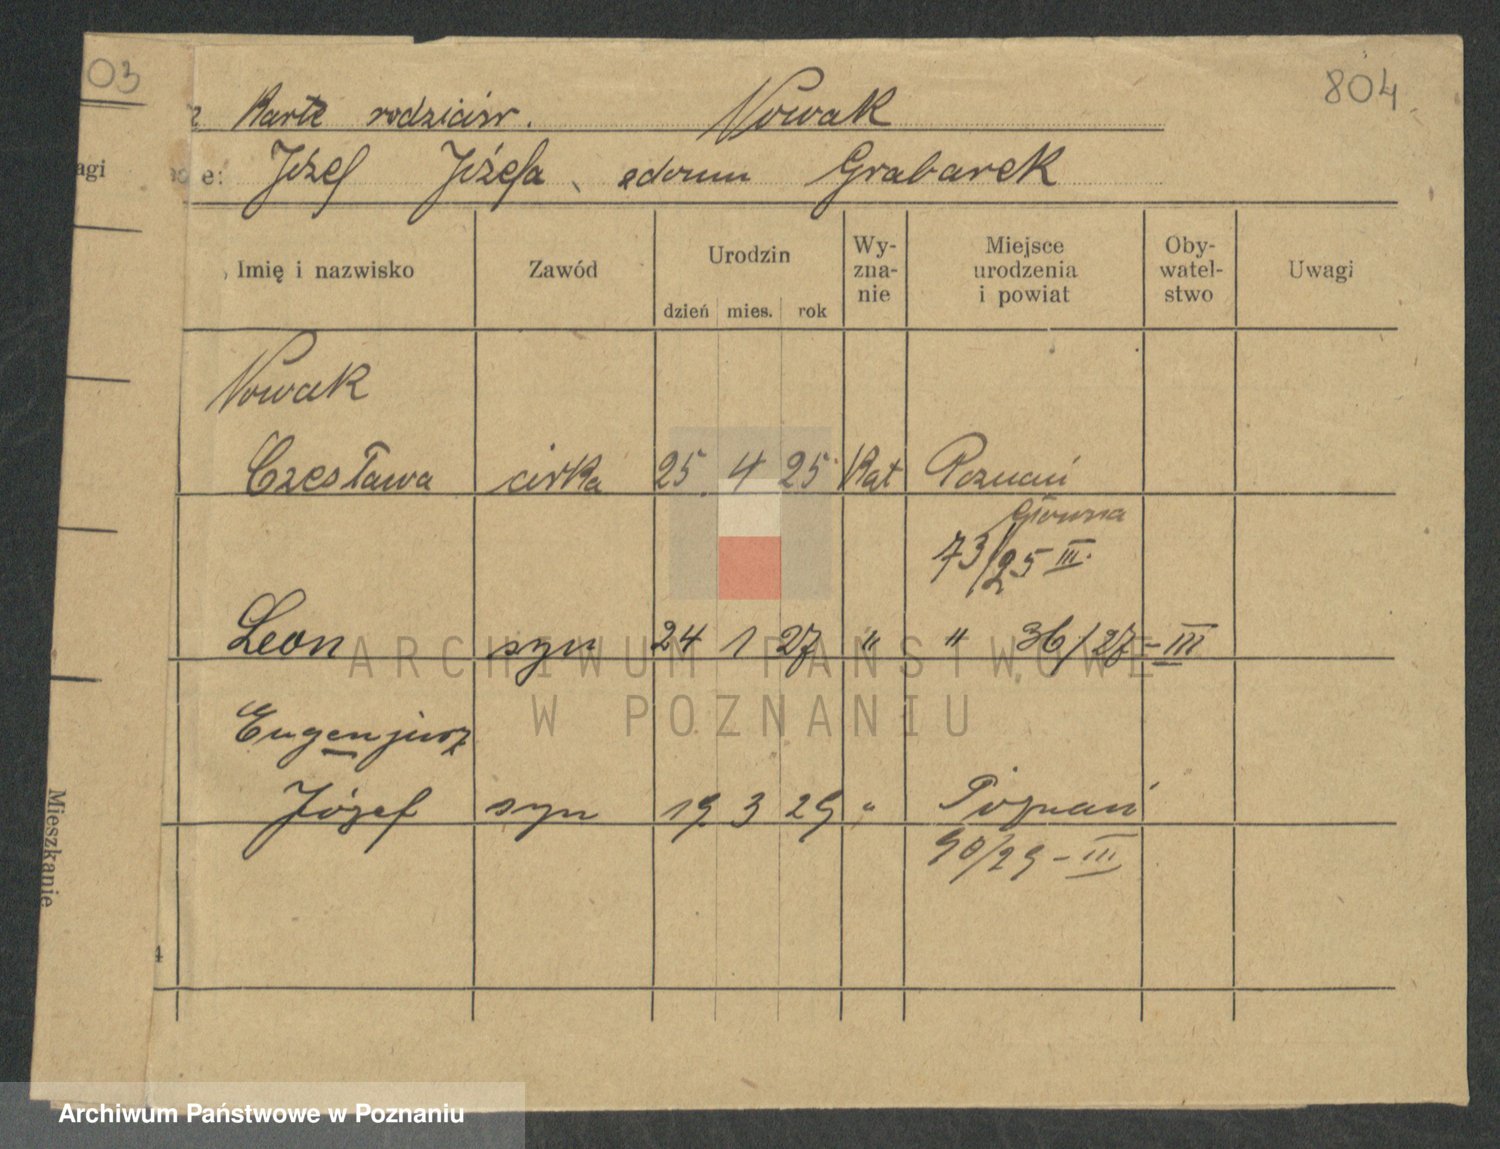 03
804
z Karte rodziców. Nowak
e: Józef Józefa, z domu Grabarek
agi
Imię i nazwisko
Zawód
Urodzin
dzień mies. rok
Wy-
zna-
nie
Miejsce
urodzenia
i powiat
Oby-
watel-
stwo
Uwagi
Nowak
Czesława córka 25. 4 25 Kat Poznań
Główna
73/25 III.
Leon syn 24 1 27 " " 36/27-III
Eugenjusz
Józef syn 19 3 29 " Poznań
90/29-III
Mieszkanie
4
ARCHIWUM PAŃSTWOWE
W POZNANIU
Archiwum Państwowe w Poznaniu